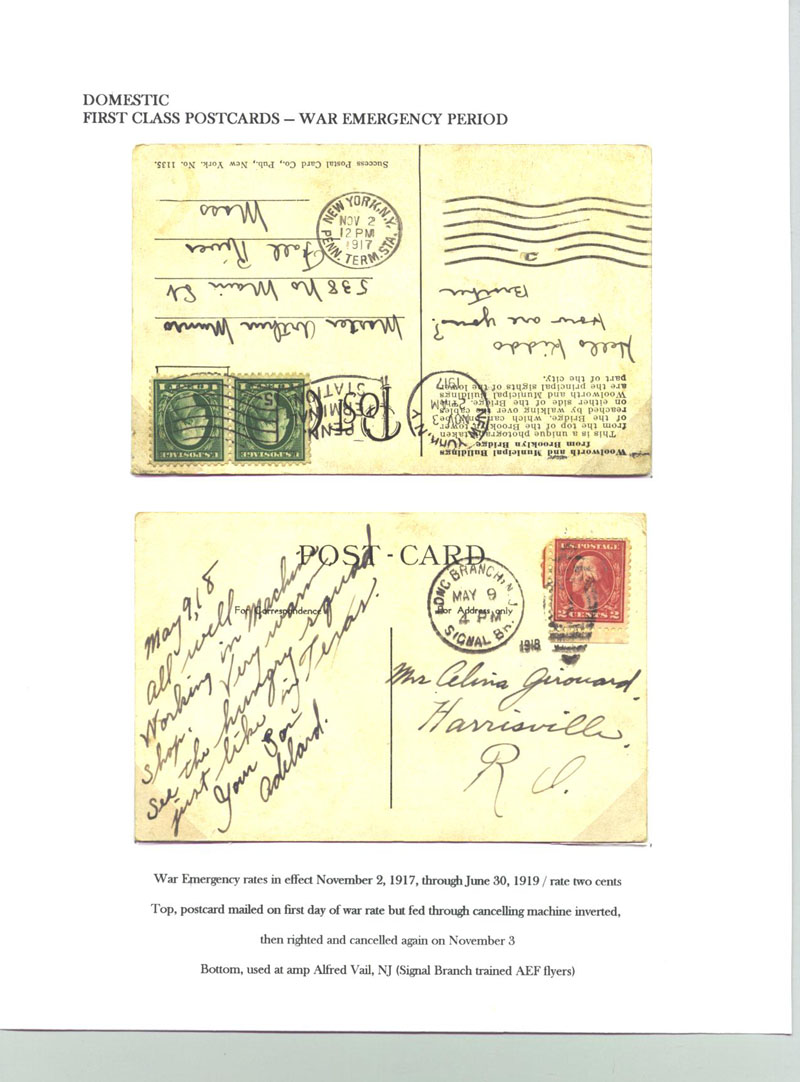 DOMESTIC
FIRST CLASS POSTCARDS – WAR EMERGENCY PERIOD
Success Postal Card Co., Pub., New York. No. 1135.
NEW YORK, N.Y.
NOV 2
12 PM
1917
PENN. TERM. STA.
Woolworth and Municipal Buildings
from Brooklyn Bridge
This is a unique photograph taken
from the top of the Brooklyn tower
of the Bridge, which can be
reached by walking over the cables
on either side of the Bridge. The
Woolworth and Municipal Bldgs
are the principal sights of the lower
part of the city.
Hello Kiddo
How are you?
Brother
Master Arthur Munro
538 No Main St
Fall River
Mass
NOV 3
1917
PENN
TERMINAL
STATION
U.S. POSTAGE
U.S. POSTAGE
POST-CARD
For Correspondence
For Address only
LONG BRANCH, N.J.
MAY 9
4 PM
SIGNAL BR.
1918
U.S. POSTAGE
2 CENTS 2
May 9, 18
All well
Working in Machine
Shop. Very warm
See the hungry squad
just like in Texas.
Your Son
Adelard.
Mrs Celina Girouard.
Harrisville,
R I.
War Emergency rates in effect November 2, 1917, through June 30, 1919 / rate two cents
Top, postcard mailed on first day of war rate but fed through cancelling machine inverted,
then righted and cancelled again on November 3
Bottom, used at amp Alfred Vail, NJ (Signal Branch trained AEF flyers)